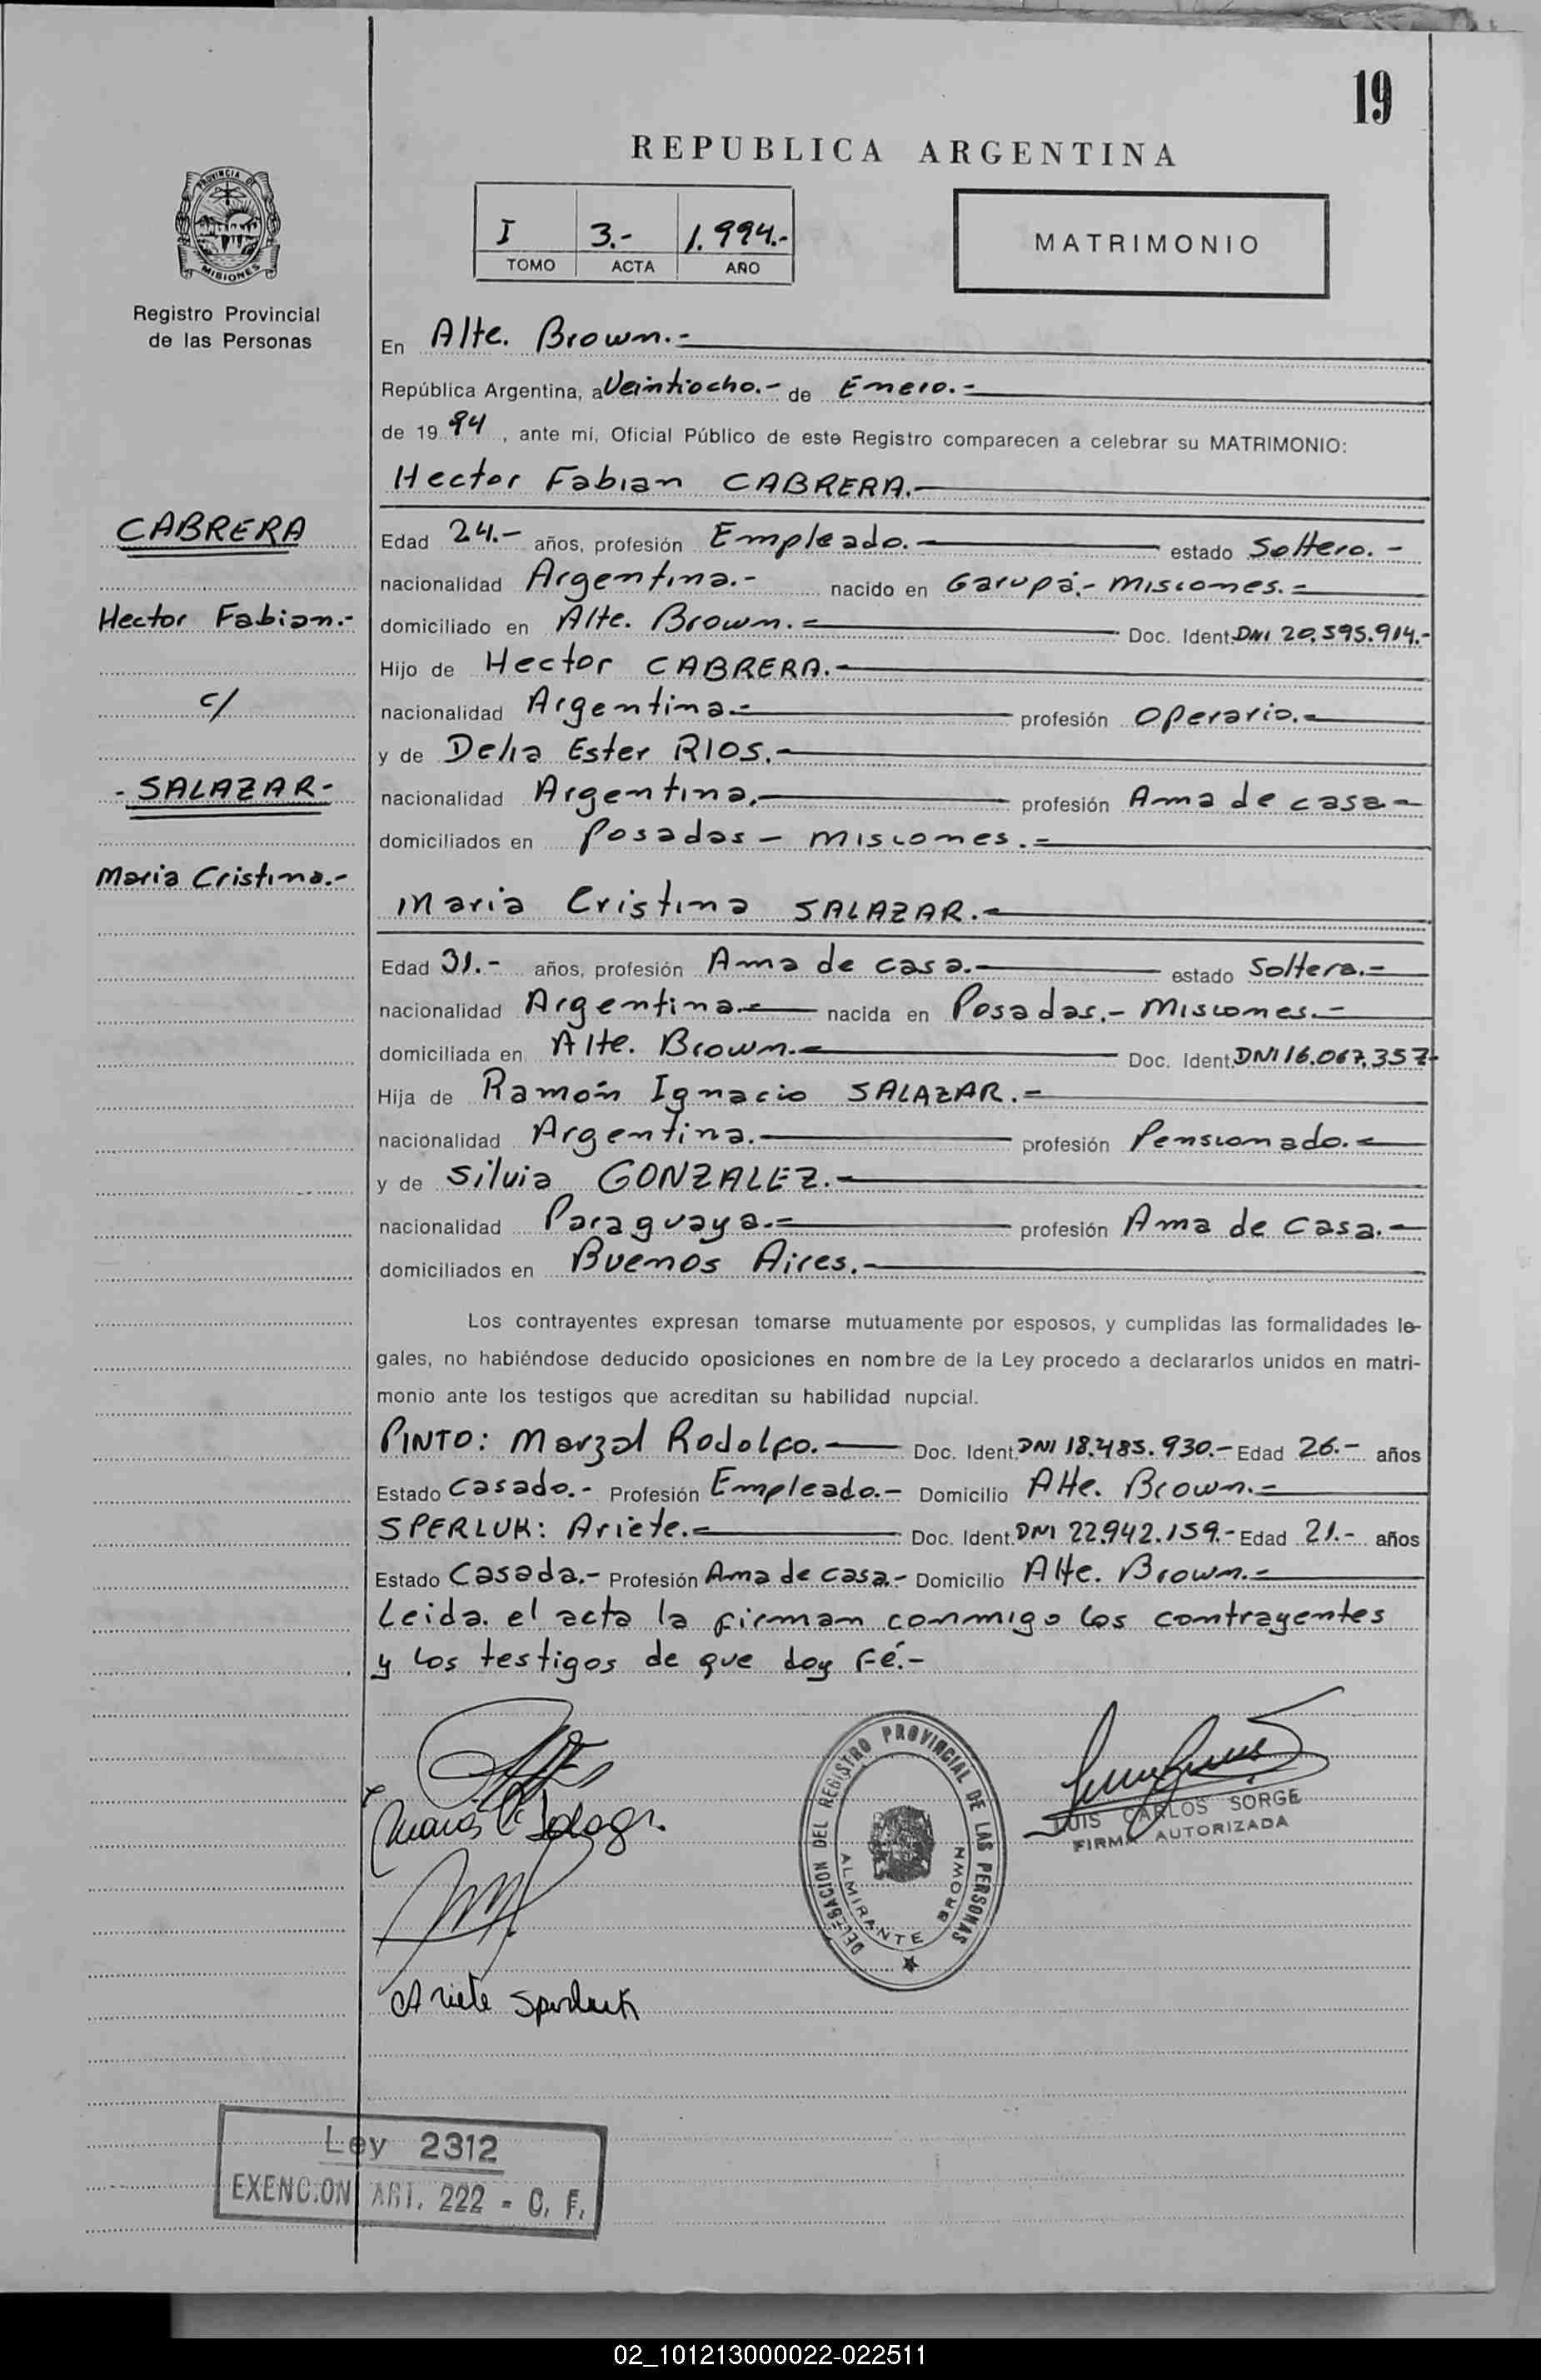 19
REPUBLICA ARGENTINA
PROVINCIA DE
MISIONES
Registro Provincial
de las Personas
I 3.- 1.994.-
TOMO ACTA AÑO
MATRIMONIO
En Alte. Brown.-
República Argentina, a Veintiocho.- de Enero.-
de 1994, ante mí, Oficial Público de este Registro comparecen a celebrar su MATRIMONIO:
Hector Fabian CABRERA.-
CABRERA
Edad 24.- años, profesión Empleado.- estado Soltero.-
nacionalidad Argentina.- nacido en Garupá.- Misiones.-
Hector Fabian.-
domiciliado en Alte. Brown.- Doc. Ident. DNI 20.595.914.-
Hijo de Hector CABRERA.-
c/
nacionalidad Argentina.- profesión Operario.-
y de Delia Ester RIOS.-
- SALAZAR -
nacionalidad Argentina.- profesión Ama de casa-
domiciliados en Posadas - Misiones.-
Maria Cristina.-
Maria Cristina SALAZAR.-
Edad 31.- años, profesión Ama de casa.- estado Soltera.-
nacionalidad Argentina.- nacida en Posadas.- Misiones.-
domiciliada en Alte. Brown.- Doc. Ident. DNI 16.067.357-
Hija de Ramón Ignacio SALAZAR.-
nacionalidad Argentina.- profesión Pensionado.-
y de Silvia GONZALEZ.-
nacionalidad Paraguaya.- profesión Ama de casa.-
domiciliados en Buenos Aires.-
Los contrayentes expresan tomarse mutuamente por esposos, y cumplidas las formalidades le-
gales, no habiéndose deducido oposiciones en nombre de la Ley procedo a declararlos unidos en matri-
monio ante los testigos que acreditan su habilidad nupcial.
PINTO: Marzal Rodolfo.- Doc. Ident. DNI 18.485.930.- Edad 26.- años
Estado Casado.- Profesión Empleado.- Domicilio Alte. Brown.-
SPERLUK: Ariete.- Doc. Ident. DNI 22.942.159.- Edad 21.- años
Estado Casada.- Profesión Ama de casa.- Domicilio Alte. Brown.-
Leida. el acta la firman conmigo los contrayentes
y los testigos de que doy Fé.-
DELEGACION DEL REGISTRO PROVINCIAL DE LAS PERSONAS
ALMIRANTE BROWN
LUIS CARLOS SORGE
FIRMA AUTORIZADA
Maria C
Ariete Sperluk
Ley 2312
EXENCION ART. 222 - C. F.
02_101213000022-022511